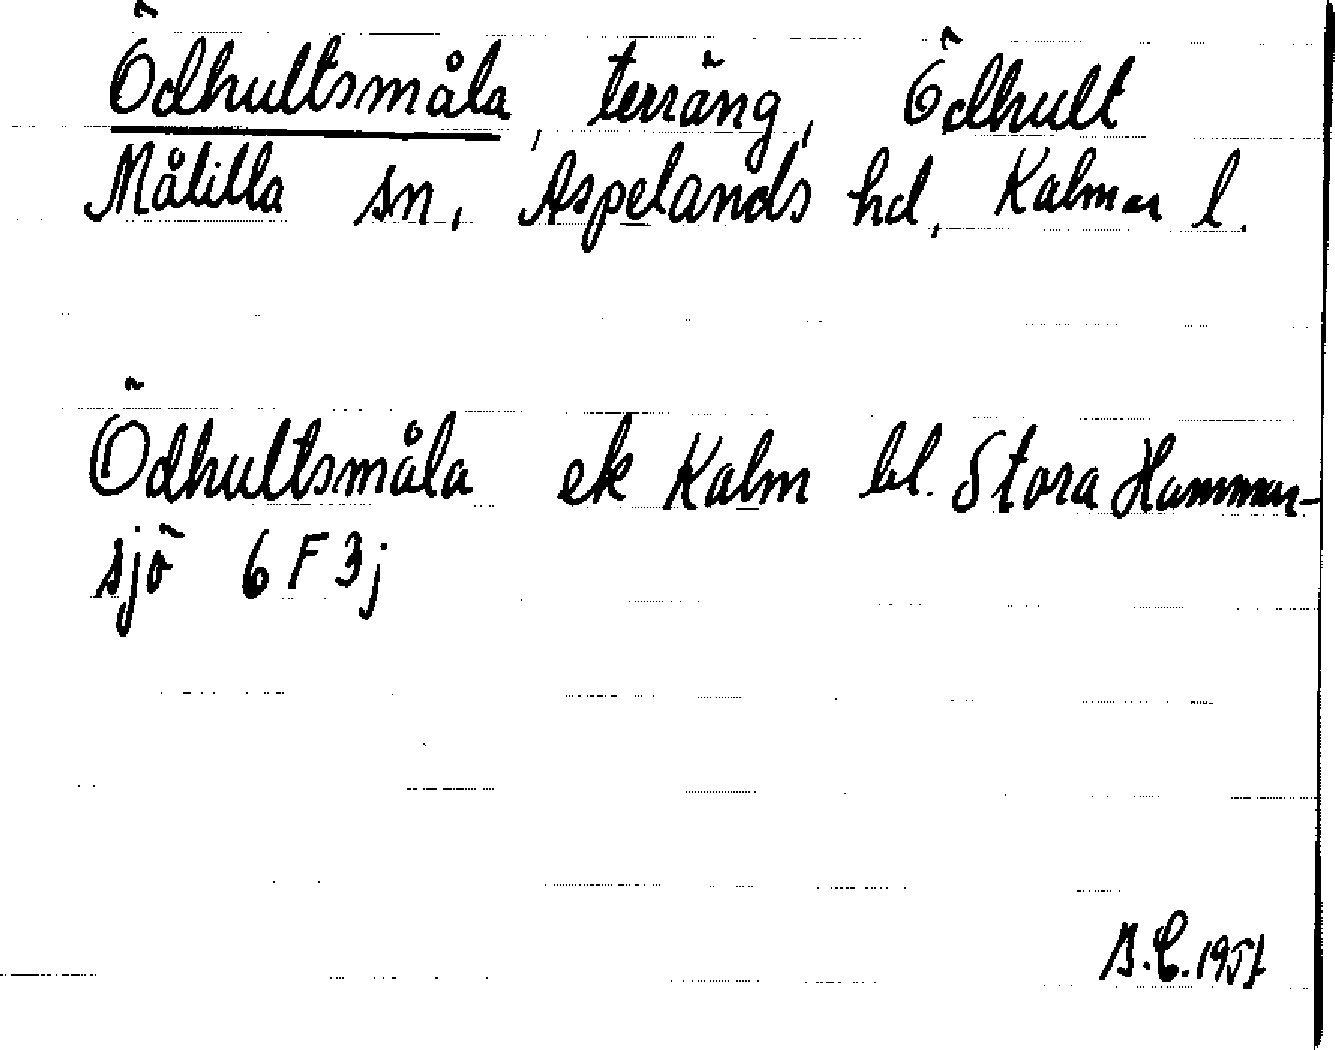 Ödhultsmåla, terräng, Ödhult
Målilla sn, Aspelands hd, Kalmar l.
Ödhultsmåla ek Kalm bl. Stora Hammar-
sjö 6 F 3j
B.C. 1957